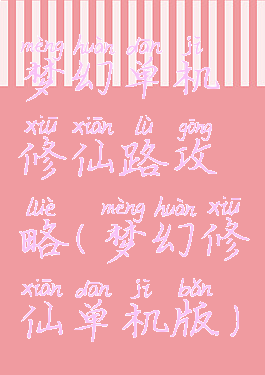 mèng huàn dān jī
梦幻单机
xiū xiān lù gōng
修仙路攻
lüè mèng huàn xiū
略(梦幻修
xiān dān jī bǎn
仙单机版)